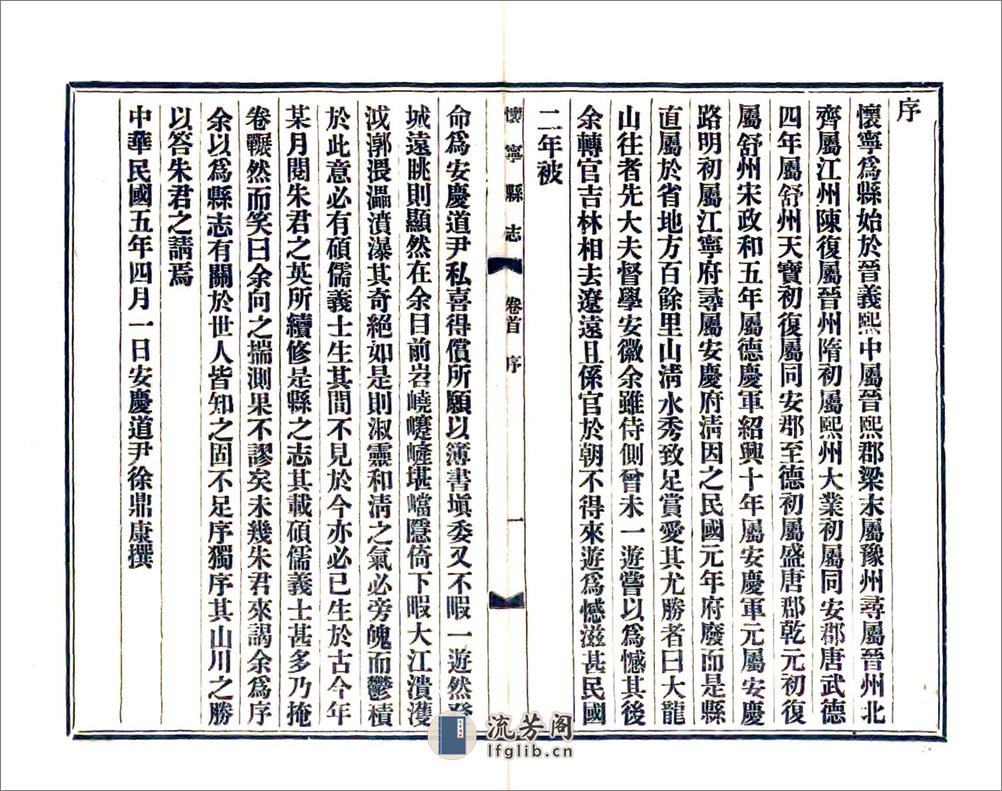 序
懷寧爲縣始於晉義熙中屬晉熙郡梁末屬豫州尋屬晉州北
齊屬江州陳復屬晉州隋初屬熙州大業初屬同安郡唐武德
四年屬舒州天寶初復屬同安郡至德初屬盛唐郡乾元初復
屬舒州宋政和五年屬德慶軍紹興十年屬安慶軍元屬安慶
路明初屬江寧府尋屬安慶府清因之民國元年府廢而是縣
直屬於省地方百餘里山清水秀致足賞愛其尤勝者曰大龍
山往者先大夫督學安徽余雖侍側曾未一遊嘗以爲憾其後
余轉官吉林相去遼遠且係官於朝不得來遊爲憾滋甚民國
二年被
懷寧縣志 卷首 序 一
命爲安慶道尹私喜得償所願以簿書塡委又不暇一遊然登
城遠眺則顯然在余目前岩嶢嶻嶭堪㠔隱倚下瞰大江潰濩
泧漷渨㵽濆瀑其奇絕如是則淑靈和清之氣必旁魄而鬱積
於此意必有碩儒義士生其間不見於今亦必已生於古今年
某月閱朱君之英所續修是縣之志其載碩儒義士甚多乃掩
卷囅然而笑曰余向之揣測果不謬矣未幾朱君來謁余爲序
余以爲縣志有關於世人皆知之固不足序獨序其山川之勝
以答朱君之請焉
中華民國五年四月一日安慶道尹徐鼎康撰
流芳阁
lfglib.cn